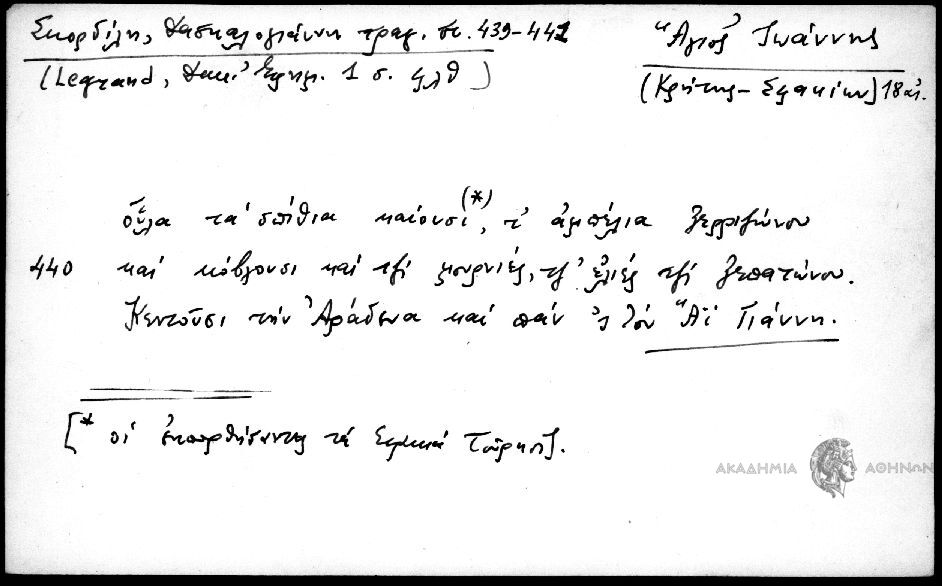 Σκορδίλη, Δασκαλογιάννη τραγ. στ. 439-441
(Legrand, Δημ. 1 σ. ϟλθ)
Ἅγιος Ἰωάννης
(Κρήτης - Σφακίων) 18 αἰ.
οὗλα τὰ σπίθια καίουσι(*), τ' ἀμπέλια ξερριζώνου
440 καὶ κόβγουσι καὶ τζί μουρνιές, τζ' ἐλιές τζί ξεπατώνου.
Κεντοῦσι τὴν Ἀράδενα καὶ πᾶν 'ς τὸν Ἅϊ Γιάννη.
[* οἱ ἐκπορθήσαντες τὰ Σφακιά Τοῦρκοι].
ΑΚΑΔΗΜΙΑ ΑΘΗΝΩΝ